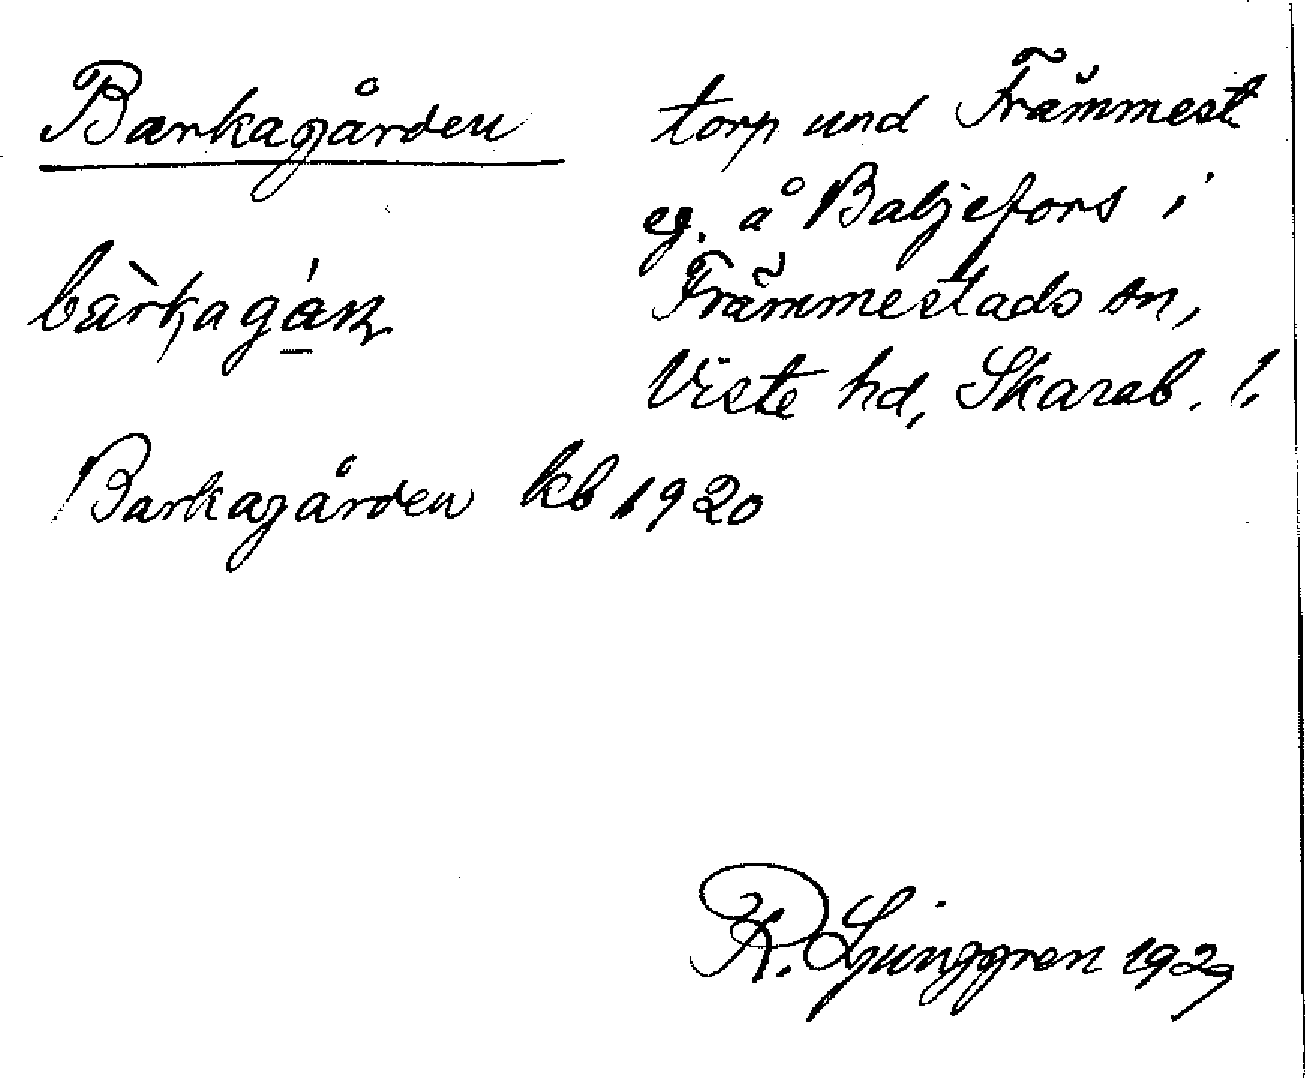 Barkagården
torp und Främmest
eg. å Baljefors i
Främmestads sn,
Viste hd, Skarab. l.
Barkagården kb 1920
R. Ljunggren 1929